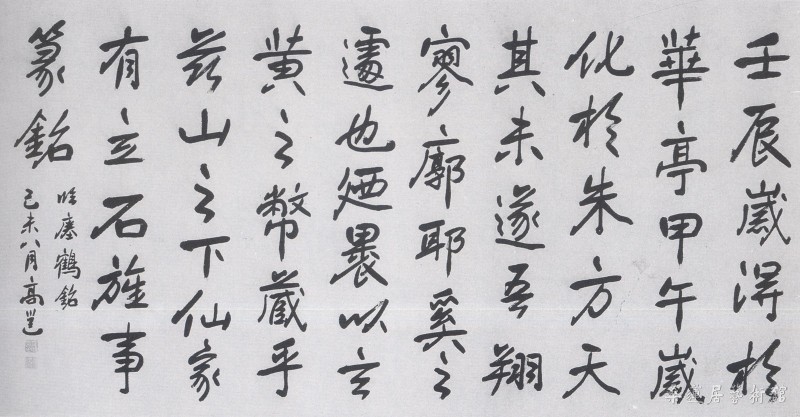 壬辰歲得於
華亭甲午歲
化於朱方天
其未遂吾翔
寥廓耶奚之
遽也廼裹以玄
黄之幣藏乎
茲山之下仙家
有立石旌事
篆銘
臨瘞鶴銘
己未八月高邕